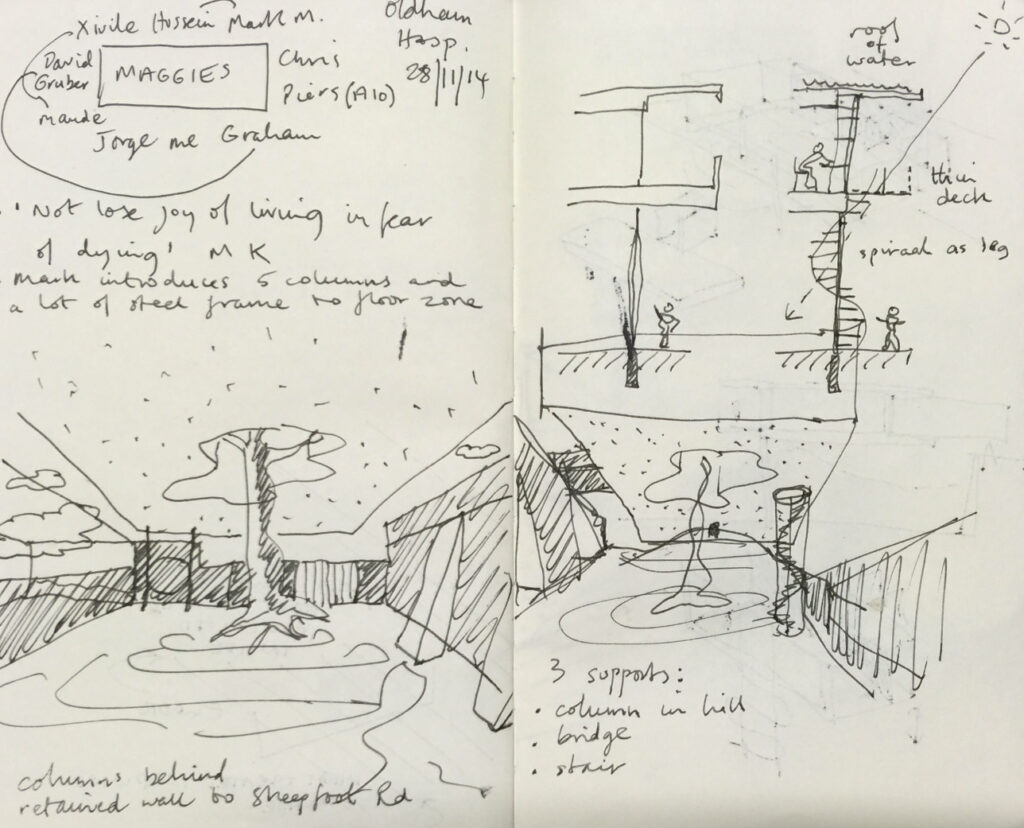 Xivile Hussein Mark M.
Oldham
Hosp.
28/11/14
David
Gruber
Maude
MAGGIES
Chris
Piers (A10)
Jorge me Graham
• 'Not lose joy of living in fear
of dying' M K
• Mark introduces 5 columns and
a lot of steel frame to floor zone
columns behind
retained wall to Sheepfoot Rd
roof
of
water
thin
deck
spiral as leg
3 supports:
• column in hill
• bridge
• stair